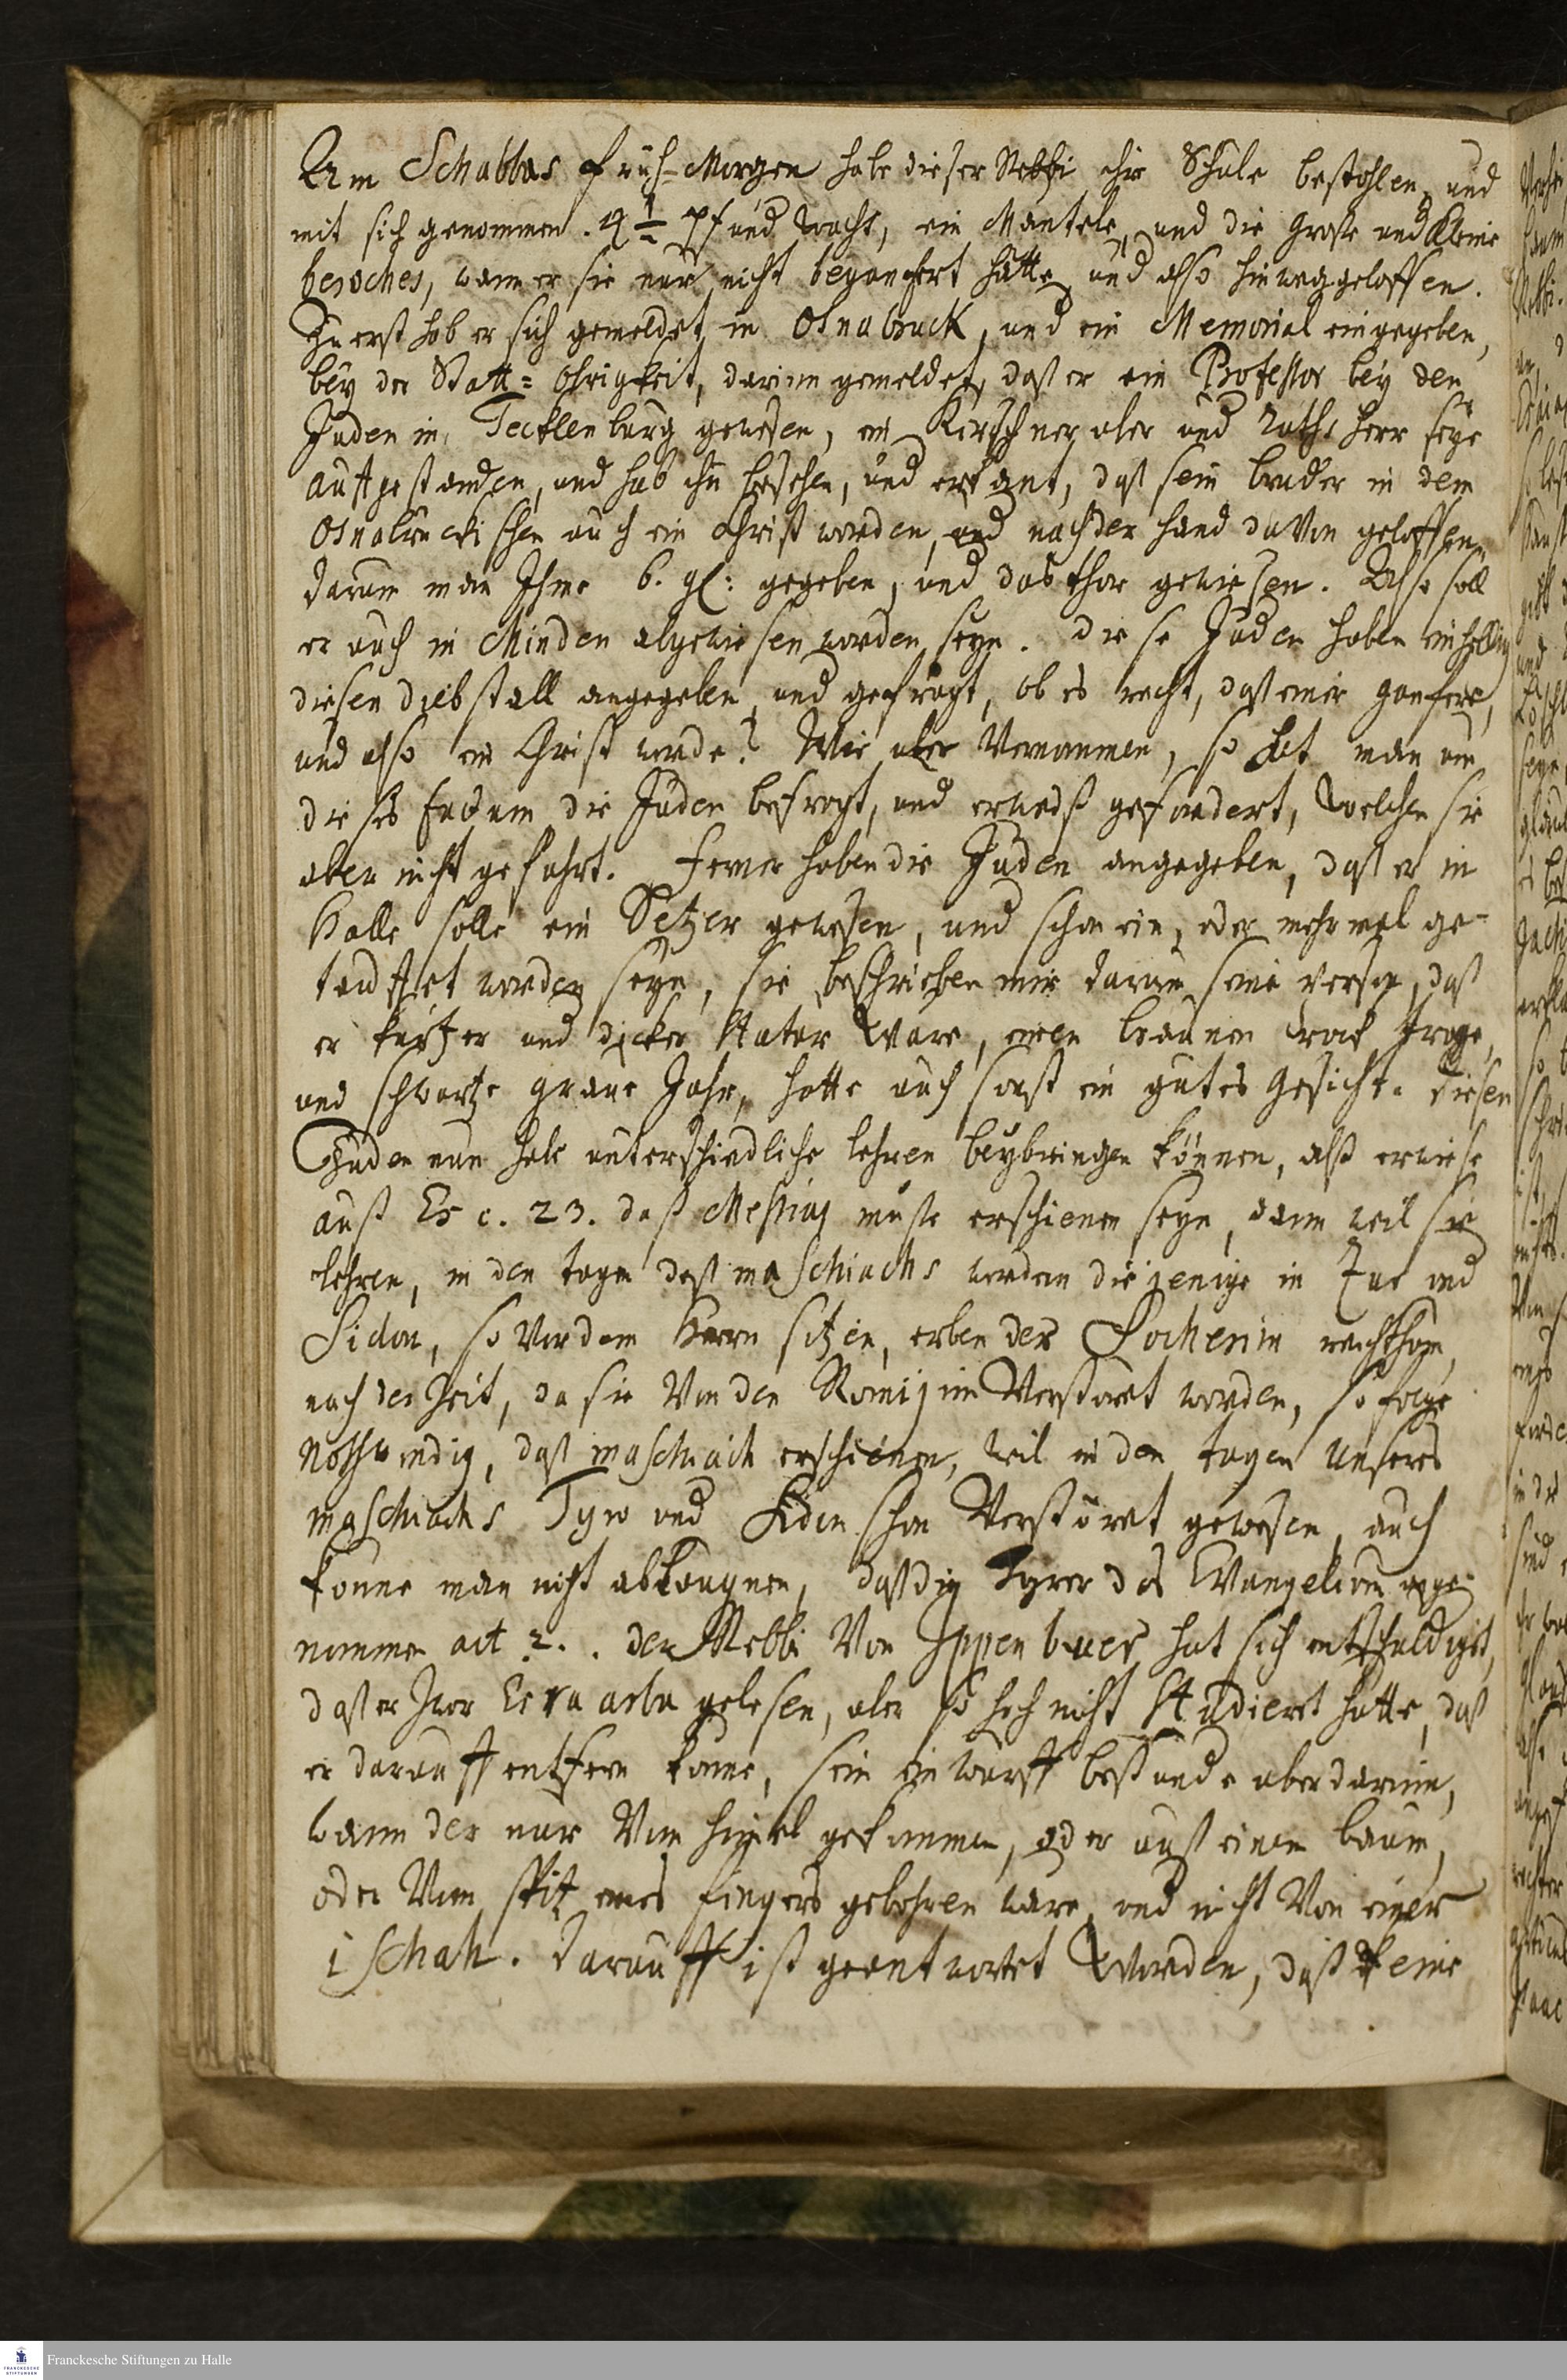 Am Schabbas früh-Morgen habe dieser Rebbi ihre Schule bestohlen, und
mit sich genommen. 4 1/2 pfund wachs, ein Mantele, und die große und Kleine
besoches, wann er sie nur nicht begancfert hätte, und also hinweggeloffen.
Zu erst hab er sich gemeldet in Osnabruck, und ein Memorial eingegeben,
bey der Statt=Obrigkeit, darinn gemeldet, daß er ein Professor bey den
Juden in Tecklenburg gewesen, ein Kerschner aber und Raths herr seye
aufgestanden, und hab ihn besehen, und erkant, daß sein bruder in dem
Osnabruckischen auch ein Christ worden, und nach der hand davon geloffen,
darum man Ihme 6. gl: gegeben, und das thor gewiesen. Also soll
er auch in Minden abgewiesen worden seyn. diese Juden haben einhellig
diesen diebstall angegeben, und gefragt, ob es recht, daß einer ganfere,
und also ein Christ werde? Wir aber Vernommen, so hat man um
dieses factum die Juden befragt, und erweiß gefordert, welchen sie
aber nicht gefuhrt. Ferner haben die Juden angegeben, daß er in
Halle solle ein Setzer gewesen, und schon ein, oder mehrmal ge-
taufft worden seyn, sie beschrieben mir darum seine person, daß
er kurtzer und dicker Statur ware, einen braunen Rock trage,
und schwartze graue Jahr, hatte auch sonst ein gutes Gesicht. diesen
Juden nun habe unterschiedliche lehren beybringen können, alß erwiese
auß Es c. 23. daß Messias muße erschienen seyn, dann weil sie
lehren, in den tagen deß maschiachs werden die jenige in Zur und
Sidon, so vor dem Herrn sitzen, erben der Socherim reichthum,
nach der Zeit, da sie Von den Romijim Verstöret worden, so folge
nothwendig, daß maschiach erschienen, weil in den tagen Unseres
maschiachs Tyro und Sidon schon Verstöret gewesen, auch
konne man nicht ablaugnen, daß die Tyrer das Evangelium ange-
nommen act 2.. der Rebbi Von Ippenbuer hat sich entschuldiget,
daß er zwar Esra arba gelesen, aber so hoch nicht Studieret hatte, daß
er darauff entfern konne, sein einwurff bestunde aber darinn,
wann der nur Vom himel gekommen, oder auß einem baum,
oder Vom spitz eines fingers gebohren ware, und nicht Von einer
ischah. darauff ist geantwortet worden, daß keine
Franckesche Stiftungen zu Halle